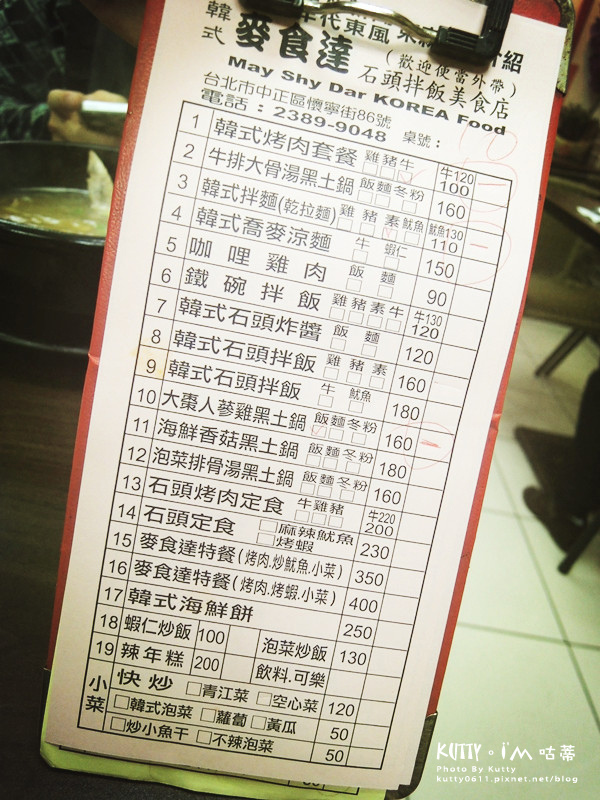 韓式
麥食達
年代東風
紹
(歡迎便當外帶)
石頭拌飯美食店
May Shy Dar KOREA Food
台北市中正區懷寧街86號
電話：2389-9048 桌號：
1 韓式烤肉套餐 雞 豬 牛 牛120 100
2 牛排大骨湯黑土鍋 飯 麵 冬粉 160
3 韓式拌麵(乾拉麵) 雞 豬 素 魷魚 魷魚130 110
4 韓式蕎麥涼麵 牛 蝦仁 150
5 咖哩雞肉 飯 麵 90
6 鐵碗拌飯 雞 豬 素 牛 牛130 120
7 韓式石頭炸醬 飯 麵 120
8 韓式石頭拌飯 雞 豬 素 160
9 韓式石頭拌飯 牛 魷魚 180
10 大棗人蔘雞黑土鍋 飯 麵 冬粉 160
11 海鮮香菇黑土鍋 飯 麵 冬粉 180
12 泡菜排骨湯黑土鍋 飯 麵 冬粉 160
13 石頭烤肉定食 牛 雞 豬 牛220 200
14 石頭定食 □麻辣魷魚 □烤蝦 230
15 麥食達特餐(烤肉.炒魷魚.小菜) 350
16 麥食達特餐(烤肉.烤蝦.小菜) 400
17 韓式海鮮餅 250
18 蝦仁炒飯 100 泡菜炒飯 130
19 辣年糕 200 飲料.可樂
小菜
快炒 □青江菜 □空心菜 120
□韓式泡菜 □蘿蔔 □黃瓜 50
□炒小魚干 □不辣泡菜 50
KUTTY。i'm 咕蒂
Photo By Kutty
kutty0611.pixnet.net/blog